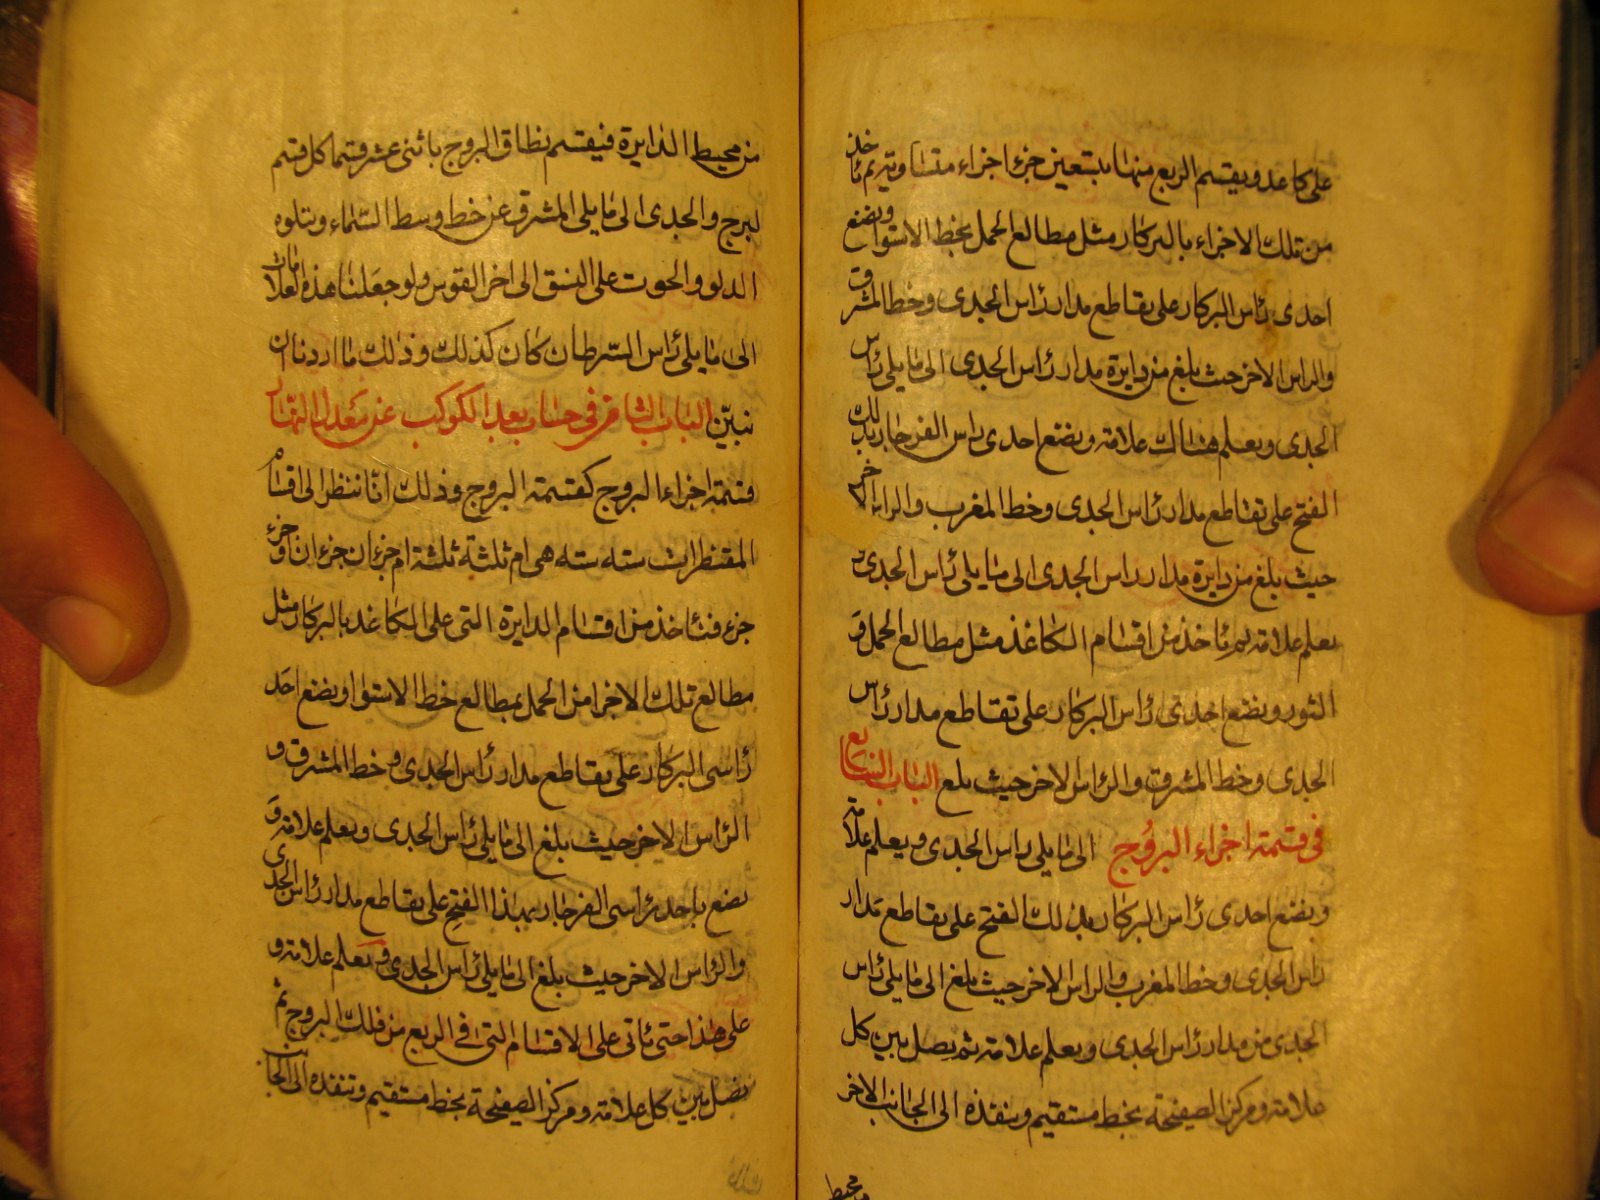 على كاغد ويقسم الربع منها بتسعين جزءا اجزاء متسا وتير ثم ناخذ
من تلك الاجزاء بالبركار مثل مطالع الحمل بخط الاستوا ويضع
احدى رأس البركار على تقاطع مدار رأس الجدى وخط المشرق
والراس الاخر حيث بلغ من دايرة مدار رأس الجدى الى ما يلى رأس
الجدى ويعلم هنالك علامة ويضع احدى راس الفرجار بذلك
الفتح على تقاطع مدار رأس الجدى وخط المغرب والراس الاخر
حيث بلغ من دايرة مدار راس الجدى الى ما يلى رأس الجدى
يعلم علامة ثم ناخذ من اقسام الكاغذ مثل مطالع الحمل و
الثور ويضع احدى رأس البركار على تقاطع مدار رأس
الجدى وخط المشرق والرأس الاخر حيث بلغ الباب السابع
فى قسمة اجزاء البروج الى ما يلى راس الجدى ويعلم علامة
ويضع احدى رأس البركار بذلك الفتح على تقاطع مدار
راس الجدى وخط المغرب والراس الاخر حيث بلغ الى ما يلى رأس
الجدى من مدار رأس الجدى ويعلم علامة ثم يصل بين كل
علامة ومركز الصفيحة بخط مستقيم وينفذه الى الجانب الاخر
ومحيط
من محيط الدايرة فيقسم نطاق البروج باثنى عشر قسما كل قسم
لبرج والجدى الى ما يلى المشرق عن خط وسط السماء ويتلوه
الدلو والحوت على النسق الى اخر القوس ولو جعلنا هذه العلامات
الى ما يلى رأس السرطان كان كذلك وذلك ما اردنا ان
نبين الباب الثامن فى حساب بعد الكوكب عن معدل النهار
قسمة اجزاء البروج كقسمة البروج وذلك انا ننظر الى اقسام
المقنطرات ستة ستة هى ام ثلثة ثلثة ام جزءان جزءان وجزء
جزء فنأخذ من اقسام الدايرة التى على الكاغد بالبركار مثل
مطالع تلك الاجزا من الحمل بمطالع خط الاستوا ويضع احد
رأسى البركار على تقاطع مدار رأس الجدى وخط المشرق و
الرأس الاخر حيث بلغ الى ما يلى رأس الجدى ويعلم علامة و
يضع باحد رأسى الفرجار بهذا الفتح على تقاطع مدار رأس الجدى
والرأس الاخر حيث بلغ الى ما يلى رأس الجدى ويعلم علامة و
على هذا حتى نأتى على الاقسام التى فى الربع من فلك البروج ثم
نصل بين كل علامة ومركز الصفيحة بخط مستقيم وتنفذه الى الجانب